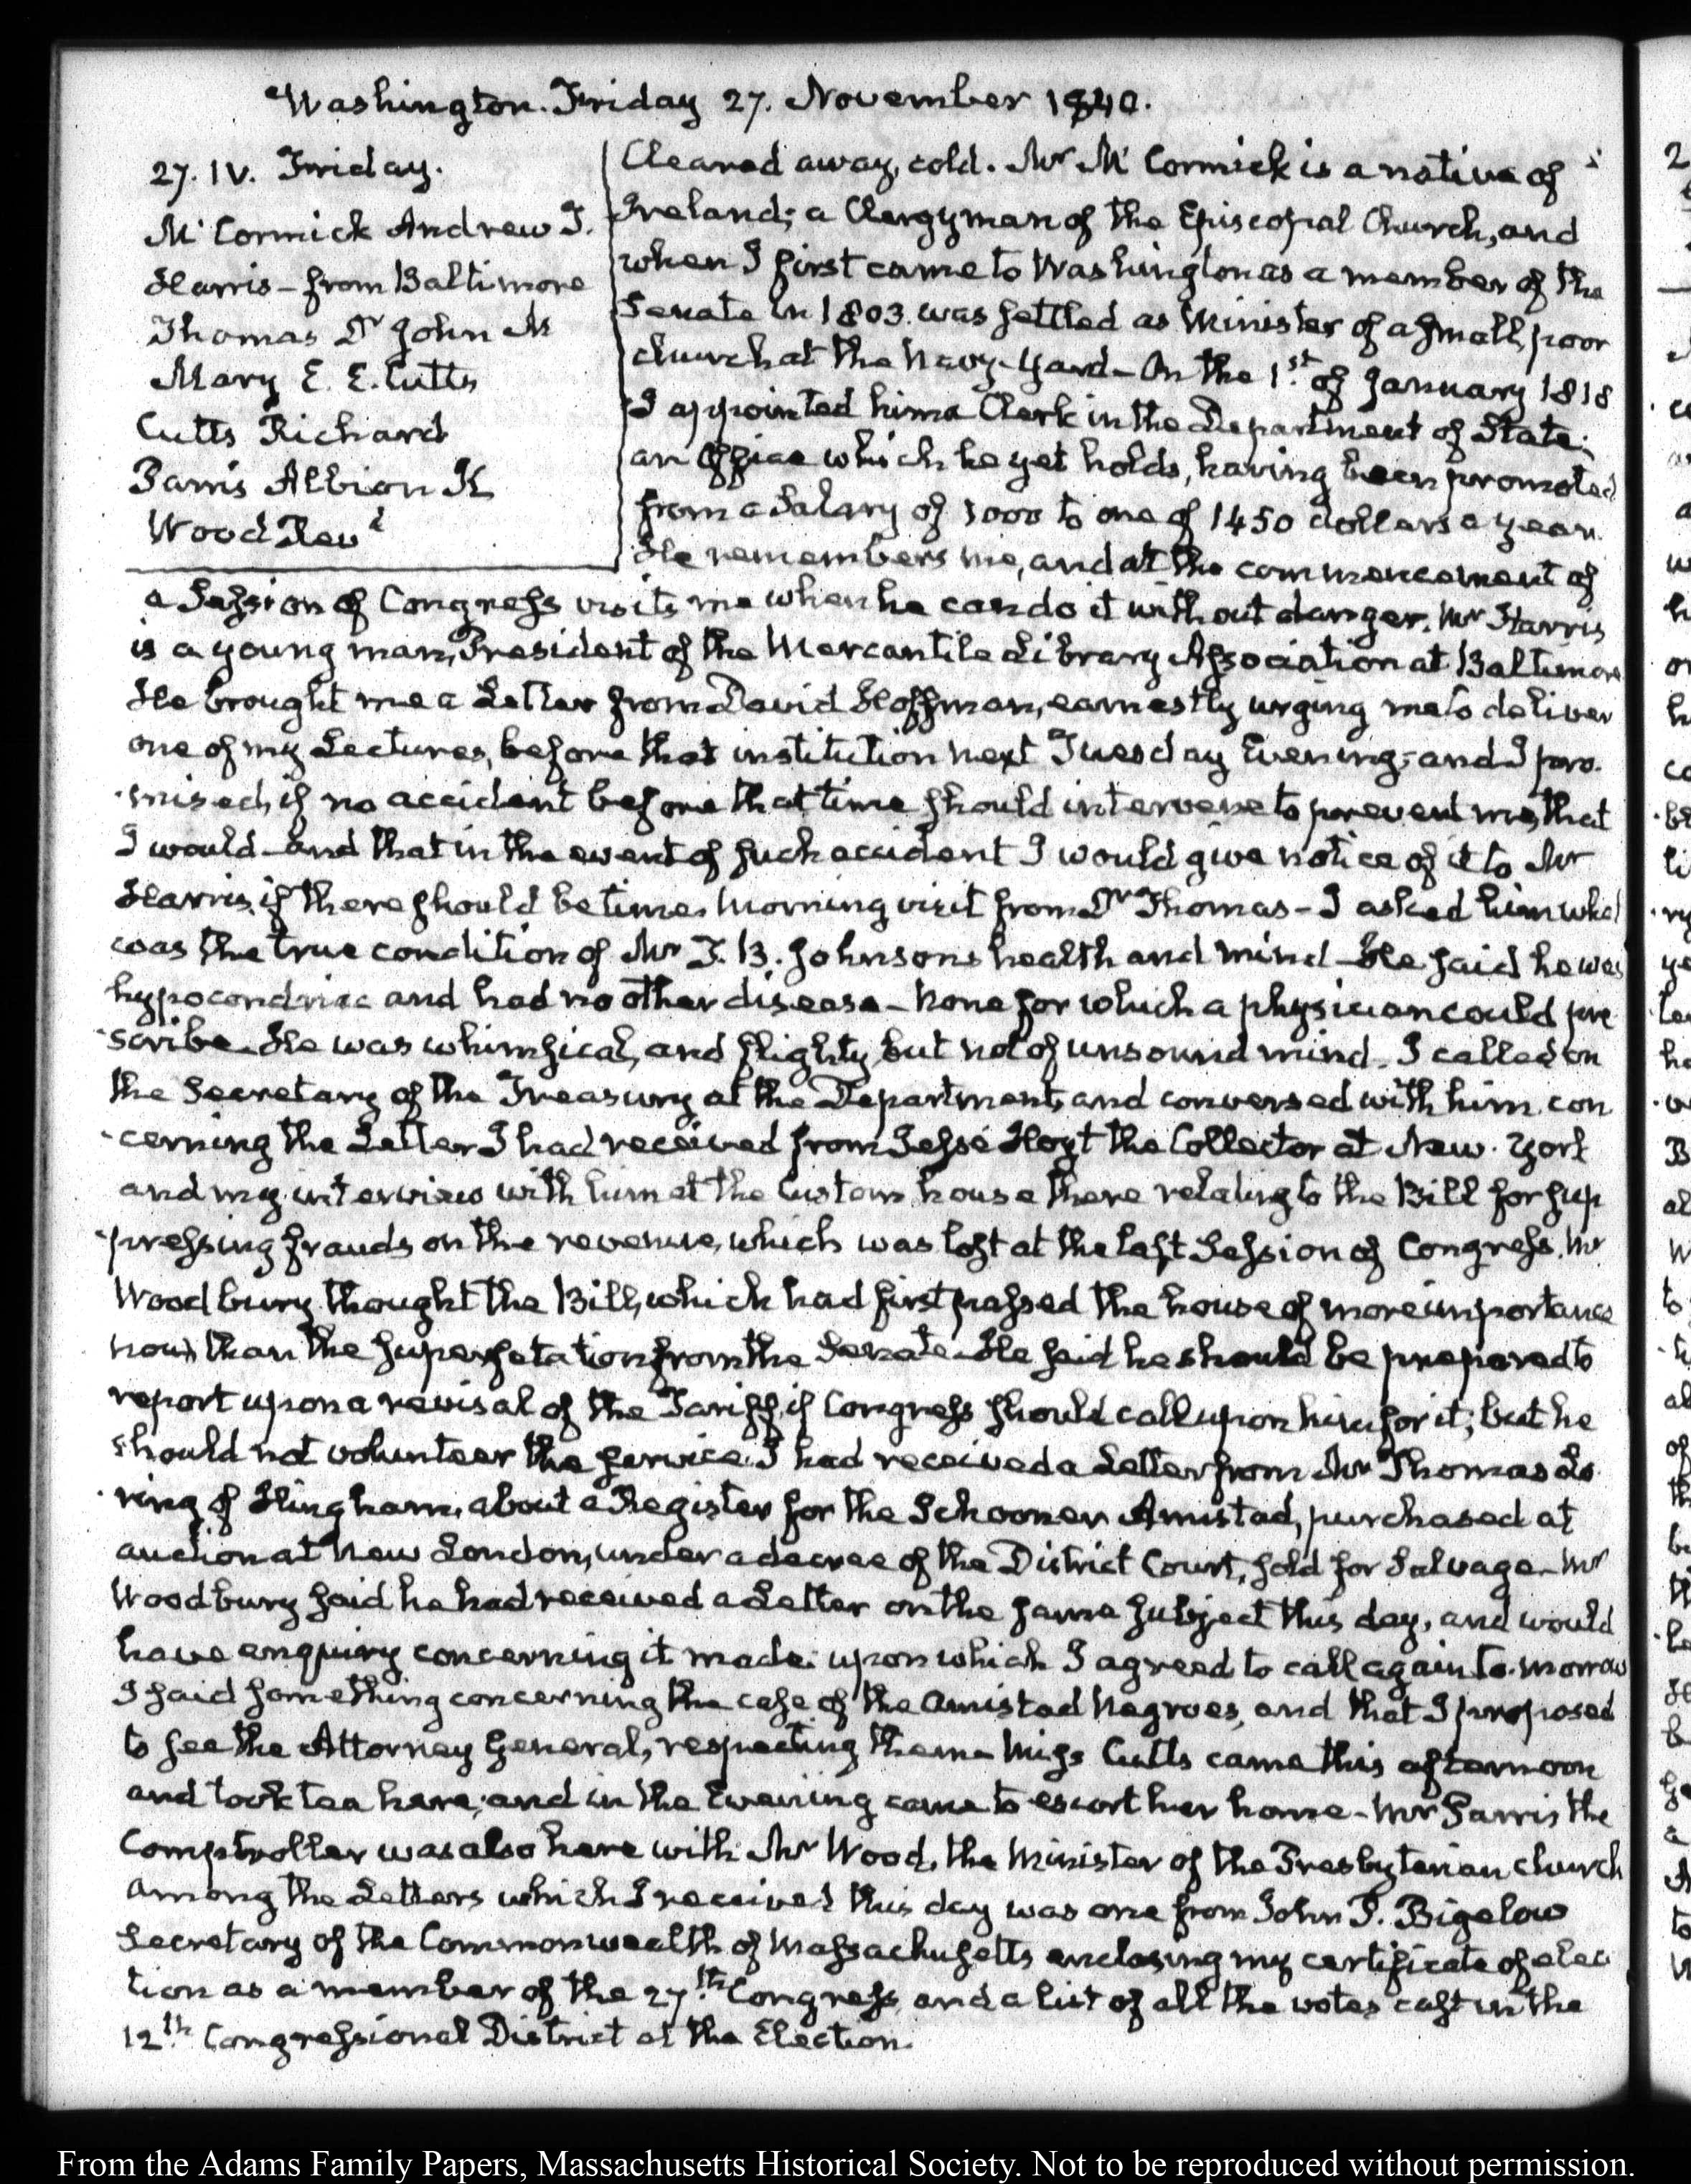 Washington. Friday 27. November 1840.
27. IV. Friday.
McCormick Andrew T.
Harris - from Baltimore
Thomas Dr John M
Mary E. E. Cutts
Cutts Richard
Parris Albion K
Wood Revd
Cleared away, cold. Mr McCormick is a native of
Ireland; a Clergyman of the Episcopal Church, and
when I first came to Washington as a member of the
Senate in 1803. was settled as Minister of a small, poor
church at the Navy-Yard - On the 1st. of January 1818
I appointed him a Clerk in the Department of State;
an Office which he yet holds, having been promoted
from a Salary of 1000 to one of 1450 dollars a year.
He remembers me, and at the commencement of
a Session of Congress visits me when he can do it without danger. Mr Harris
is a young man, President of the Mercantile Library Association at Baltimore
He brought me a Letter from David Hoffman, earnestly urging me to deliver
one of my Lectures, before that institution next Tuesday Evening; and I pro-
-mised, if no accident before that time should intervene to prevent me, that
I would - and that in the event of such accident I would give notice of it to Mr
Harris, if there should be time. Morning visit from Dr Thomas - I asked him what
was the true condition of Mr T. B. Johnsons health and mind - He said he was
hypocondriac and had no other disease - None for which a physician could pre
-scribe. He was whimsical, and flighty, but not of unsound mind - I called on
the Secretary of the Treasury at the Department, and conversed with him con
-cerning the Letter I had received from Jesse Hoyt the Collector at New-York
and my interview with him at the Custom house there relating to the Bill for sup
-pressing frauds on the revenue, which was lost at the last Session of Congress. Mr
Woodbury thought the Bill, which had first passed the house of more importance
now, than the superfetation from the Senate - He said he should be prepared to
report upon a revisal of the Tariff, if Congress should call upon him for it; but he
should not volunteer the service. I had received a Letter from Mr Thomas Lo
-ring of Hingham, about a Register for the Schooner Amistad, purchased at
auction at New London, under a decree of the District Court, sold for Salvage - Mr
Woodbury said he had received a Letter on the same subject this day, and would
have enquiry concerning it made: upon which I agreed to call again to-morrow
I said something concerning the case of the Amistad Negroes, and that I proposed
to see the Attorney General, respecting them - Miss Cutts came this afternoon
and took tea here; and in the Evening came to escort her home - Mr Parris the
Comptroller was also here with Mr Wood, the Minister of the Presbyterian church
Among the Letters which I received this day was one from John P. Bigelow
Secretary of the Commonwealth of Massachusetts enclosing my certificate of elec
tion as a member of the 27th. Congress, and a list of all the votes cast in the
12th. Congressional District at the Election.
From the Adams Family Papers, Massachusetts Historical Society. Not to be reproduced without permission.